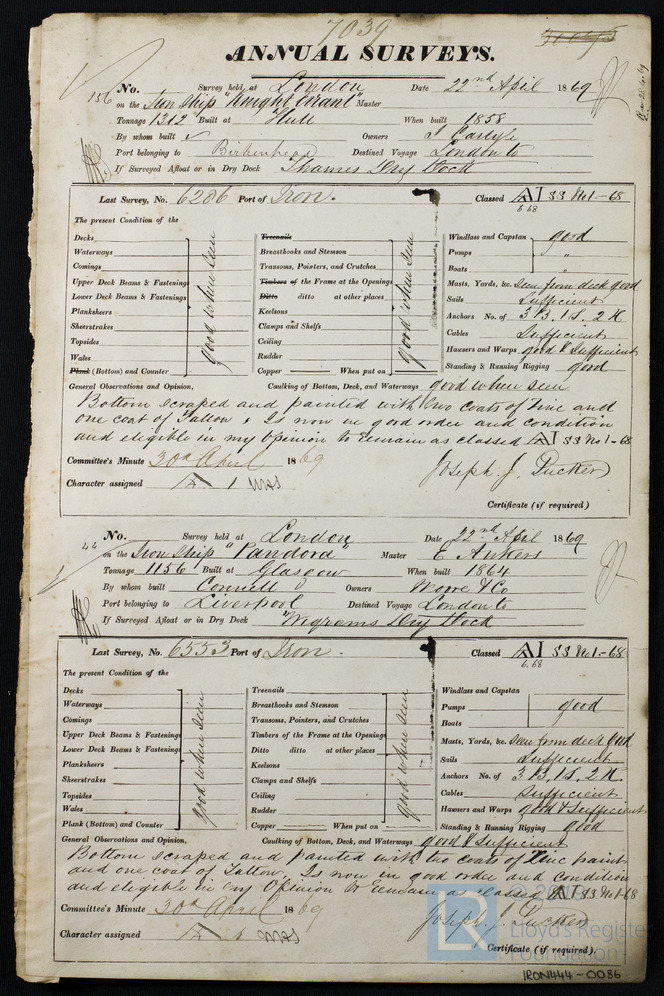 7039
ANNUAL SURVEYS.
156 No. Survey held at London Date 22nd April 1869
on the Iron Ship "Knight Errant" Master
Tonnage 1312 Built at Hull When built 1858
By whom built Owners J Carlyle
Port belonging to Birkenhead Destined Voyage London to
If Surveyed Afloat or in Dry Dock Thames Dry Dock
Last Survey, No. 6286 Port of Iron. Classed A1 SS No 1.-68
6.68
The present Condition of the
Decks
Waterways
Comings
Upper Deck Beams & Fastenings
Lower Deck Beams & Fastenings
Planksheers
Sheerstrakes
Topsides
Wales
Plank (Bottom) and Counter
good when seen
Treenails
Breasthooks and Stemson
Transoms, Pointers, and Crutches
Timbers of the Frame at the Openings
Ditto ditto at other places
Keelsons
Clamps and Shelfs
Ceiling
Rudder
Copper When put on
good when seen
Windlass and Capstan good
Pumps "
Boats "
Masts, Yards, &c. seen from deck good
Sails Sufficient
Anchors No. of 3 B. 1 S. 2 K.
Cables Sufficient
Hawsers and Warps good & Sufficient
Standing & Running Rigging good
General Observations and Opinion, Caulking of Bottom, Deck, and Waterways good when seen
Bottom scraped and painted with two coats of Zinc and
one coat of Tallow, Is now in good order and condition
and eligible in my opinion to remain as classed A1 SS No 1-68
Committee's Minute 30th April 1869
Joseph J. Tucker
Character assigned A 1
Certificate (if required)
44 No. Survey held at London Date 22nd April 1869
on the Iron Ship "Pandora" Master E Ankers
Tonnage 1156 Built at Glasgow When built 1864
By whom built Connell Owners Moore & Co
Port belonging to Liverpool Destined Voyage London to
If Surveyed Afloat or in Dry Dock Wigrams Dry Dock
Last Survey, No. 6553 Port of Iron. Classed A1 SS No 1.-68
6.68
The present Condition of the
Decks
Waterways
Comings
Upper Deck Beams & Fastenings
Lower Deck Beams & Fastenings
Planksheers
Sheerstrakes
Topsides
Wales
Plank (Bottom) and Counter
good when seen
Treenails
Breasthooks and Stemson
Transoms, Pointers, and Crutches
Timbers of the Frame at the Openings
Ditto ditto at other places
Keelsons
Clamps and Shelfs
Ceiling
Rudder
Copper When put on
good when seen
Windlass and Capstan
Pumps good
Boats
Masts, Yards, &c. seen from deck good
Sails Sufficient
Anchors No. of 3 B. 1 S. 2 K.
Cables Sufficient
Hawsers and Warps good & Sufficient
Standing & Running Rigging good
General Observations and Opinion, Caulking of Bottom, Deck, and Waterways good & Sufficient
Bottom scraped and painted with two coats of Zinc paint
and one coat of Tallow, Is now in good order and condition
and eligible in my Opinion to remain as classed A1 SS No 1-68
Committee's Minute 30th April 1869
Joseph J. Tucker
Character assigned A 1
Certificate (if required).
LR
Lloyd's Register
Foundation
IRON444-0086